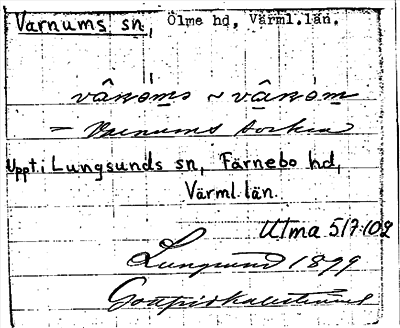 Varnums sn, Ölme hd, Värml.län.
vânoms ~ vânom
= Varnums socken
Uppt. i Lungsunds sn, Färnebo hd,
Värml. län.
Ulma 517:102
Lungsund 1899